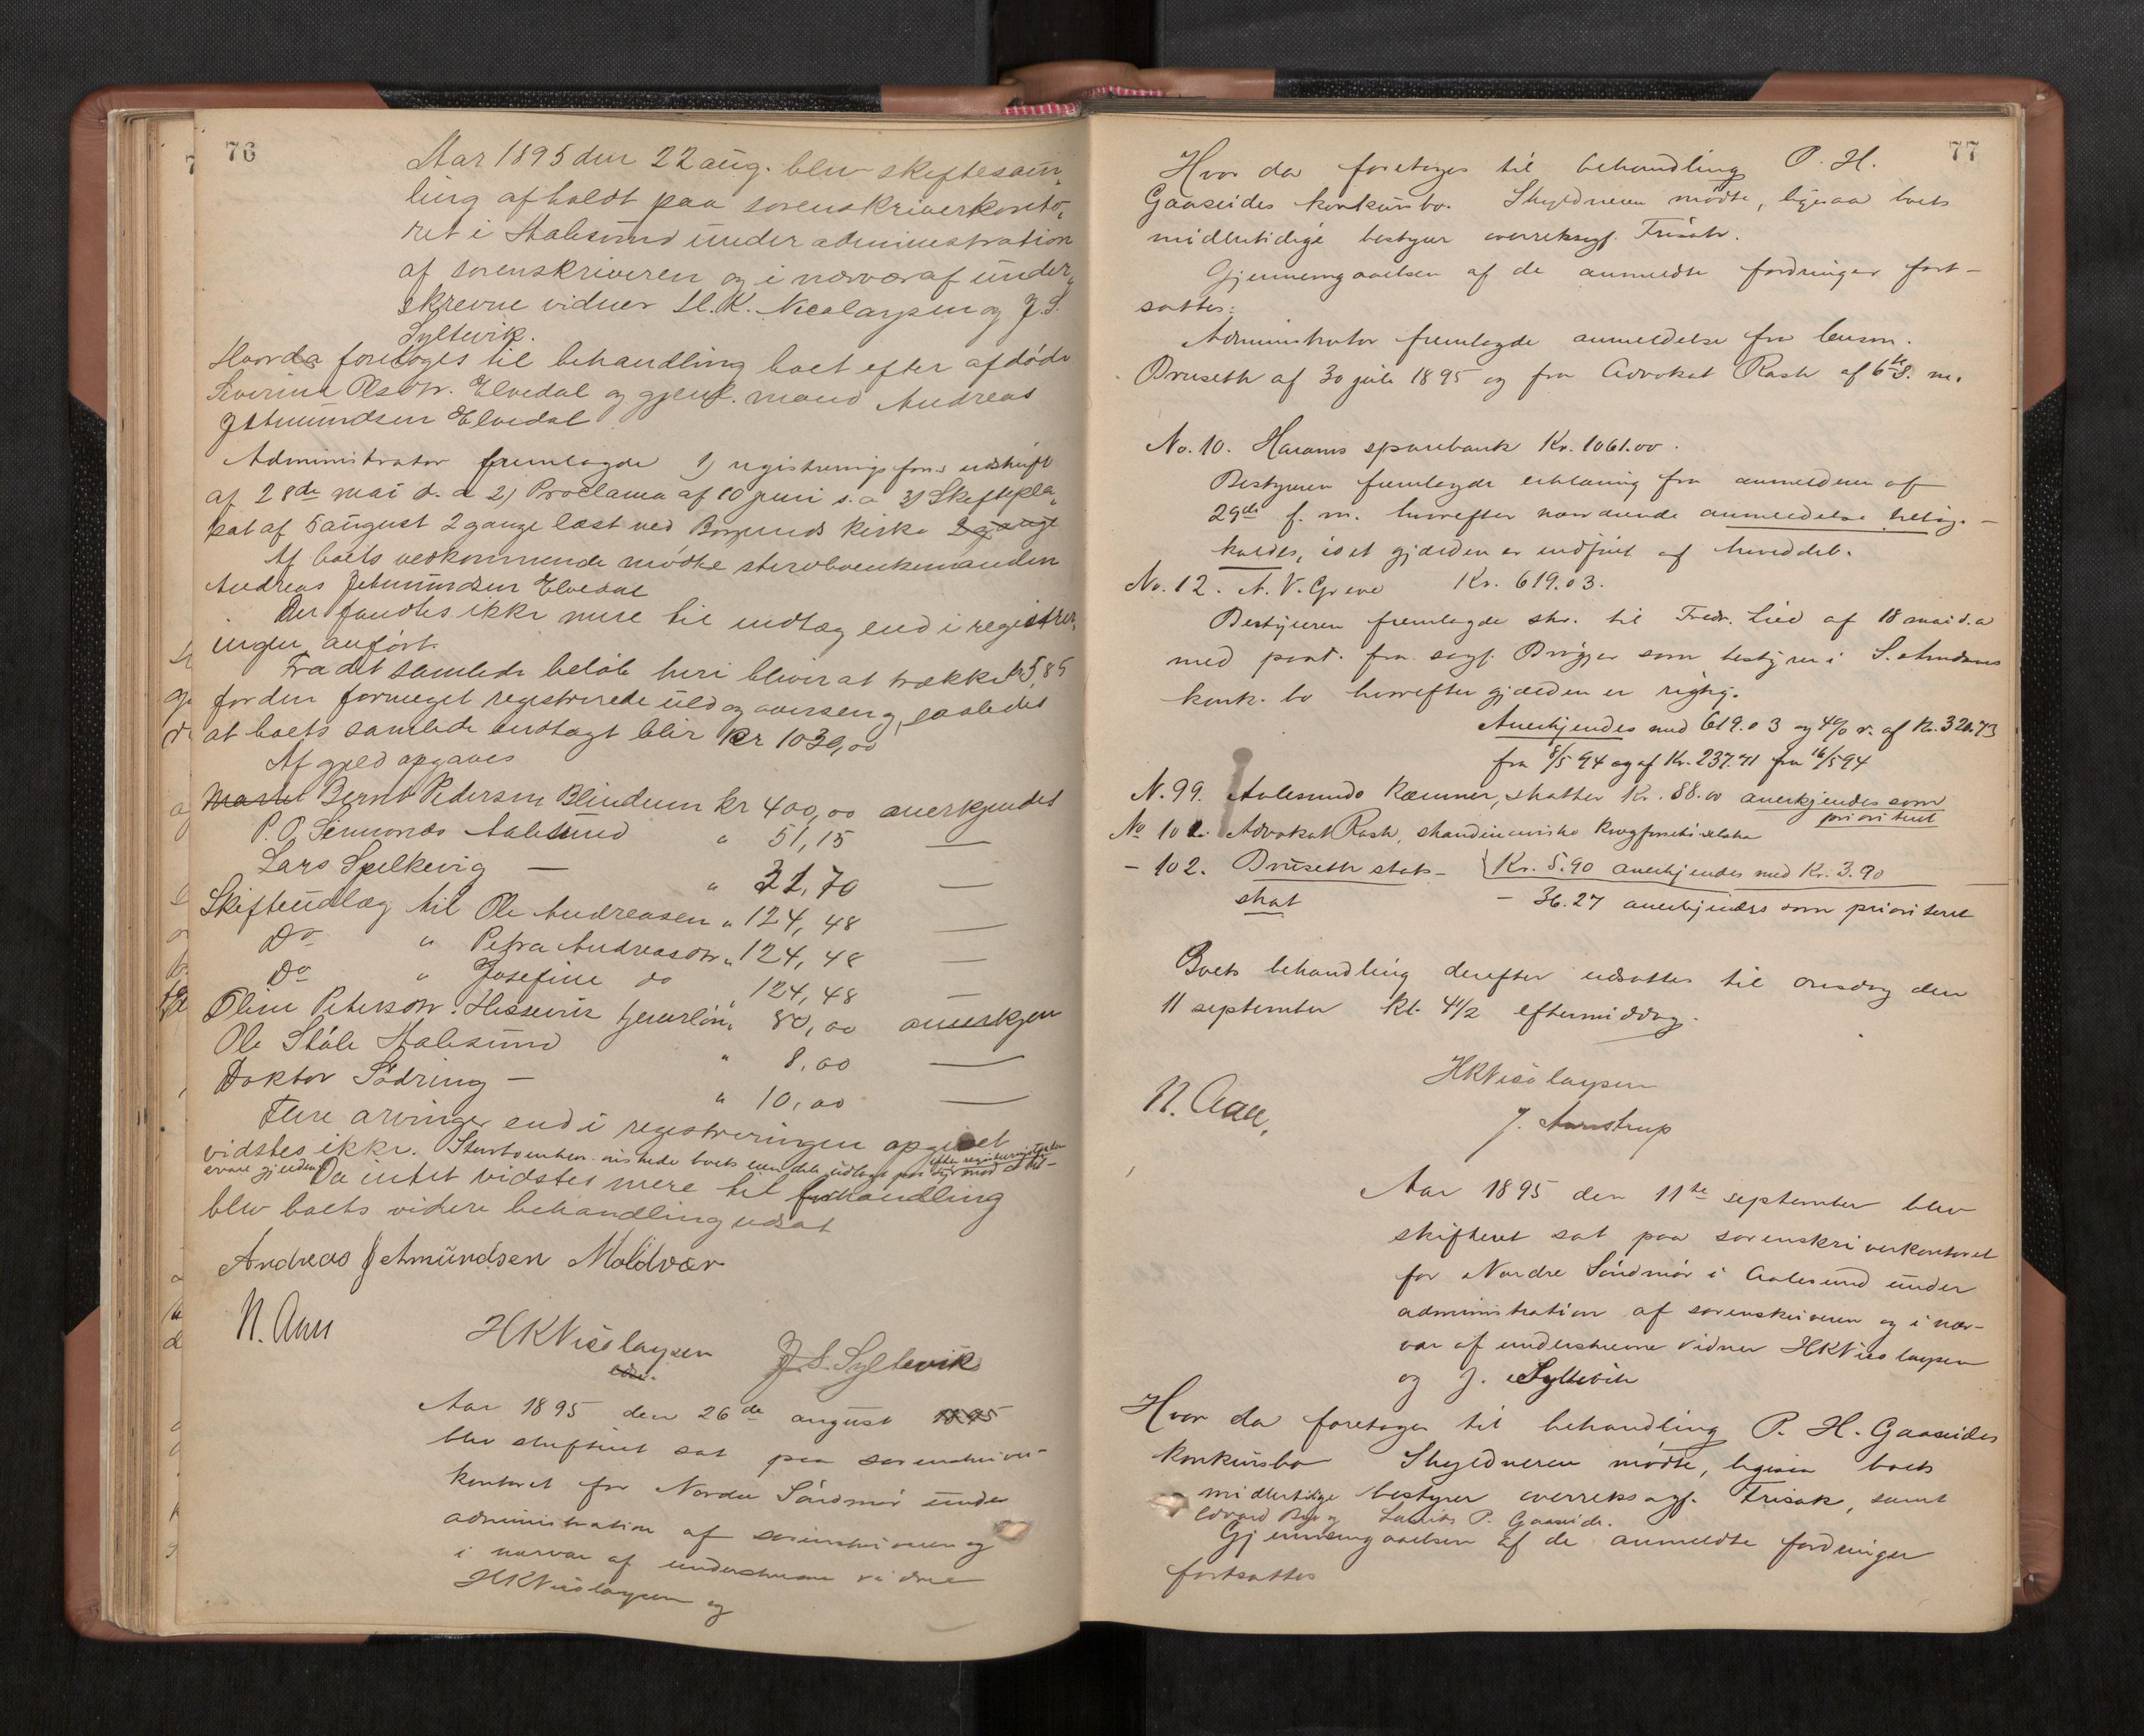 76
Aar 1895 den 22 aug. blev skiftesam„
ling afholdt paa sorenskriverkonto„
ret i Aalesund under administration
af sorenskriveren og i nærvær af under„
skrevne vidner H. K. Nicolaysen og J. S.
Syltevik.
Hvor da foretoges til behandling boet efter afdøde
Severine Olsdtr. Elvedal og gjenl. mand Andreas
Jetmundsen Elvedal
Administrator fremlagde 1) registreringsforr. udskrift
af 28de mai d. a 2) Proclama af 10 juni s. a 3) Skiftepla„
kat af 5 august 2 gange læst ved Borgunds kirke 2 gange
Af boets vedkommende mødte stervboenkemanden
Andreas Jetmundsen Elvedal
Der fandtes ikke mere til indtæg end i registrer„
ingen anført.
Fra det samlede beløb heri bliver at trække kr 5,85
for den formeget registrerede uld og overseng, saaledes
at boets samlede indtægt blir kr 1030,00
Af gjæld opgaves
Bernt Pedersen Blindum kr 400,00 anerkjendes
P. O. Simonds Aalesund " 51,15 —
Lars Spelkevig — " 31,70 —
Skifteudlæg til Ole Andreasen " 124,48 —
Do " Petra Andreasdtr " 124,48 —
Do " Josefine do " 124,48 —
Oline Petersdtr. Hessevik tjenerløn " 80,00 anerkjen
Ole Ståle Aalesund " 8,00 —
Doktor Sødring — " 10,00 —
Flere arvinger end i registreringen opgivet
vidstes ikke. boets eiendele udlagt efter registreringstaxten mod at til-
svare gjælden Da intet vidstes mere til behandling
blev boets videre behandling udsat
Andreas Jetmundsen Moldvær
N. Aall
HKNicolaysen J. S. Syltevik
Aar 1895 den 26de august 1895
blev skifteret sat paa sorenskriver-
kontoret for Nordre Søndmør under
administration af sorenskriveren og
i nærvær af underskrevne vidner
HKNicolaysen og
77
Hvor da foretoges til behandling P. H.
Gaaseides konkursbo. Skyldneren mødte, ligesaa boets
midlertidige bestyrer overretssagf. Frisak.
Gjennemgaaelsen af de anmeldte fordringer fort-
sattes:
Administrator fremlagde anmeldelse fra lensm.
Druseth af 30 juli 1895 og fra Advokat Rash af 6te d. m.
No. 10. Harams sparebank Kr. 1061.00.
Bestyreren fremlagde erklæring fra anmelderen af
29de f. m. hvorefter nærværende anmeldelse tilbage-
kaldes, idet gjælden er indfriet af hoveddeb.
No. 12. A. V. Greve Kr. 619.03.
Bestyreren fremlagde skr. til Fredr. Lied af 18 mai d. a
med paat. fra sagf. Brøgger som bestyrer i S. Amdams
konk. bo hvorefter gjælden er rigtig.
Anerkjendes med 619.03 og 4% r. af Kr. 321.73
fra 8/5 94 og af Kr. 237.71 fra 16/5 94
N. 99. Aalesunds Kæmner, skatter Kr. 88.00 anerkjendes som
prioriteret
No 101. Advokat Rash, skandinaviske
Kr. 5.90 anerkjendes med Kr. 3.90
- 102. Druseth stats-
skat - 36.27 anerkjendes som prioriteret
Boets behandling derefter udsattes til onsdag den
11 september kl. 4 1/2 eftermiddag.
HKNicolaysen
N. Aall,
J. Aarstrup
Aar 1895 den 11te september blev
skifteret sat paa sorenskriverkontoret
for Nordre Søndmør i Aalesund under
administration af sorenskriveren og i nær-
vær af underskrevne vidner HKNicolaysen
og J. Syltevik
Hvor da foretoges til behandling P. H. Gaaseides
konkursbo Skyldneren mødte, ligesaa boets
midlertidige bestyrer overretssagf. Frisak, samt
Edvard Berg Laurits P. Gaaseide.
Gjennemgaaelsen af de anmeldte fordringer
fortsattes